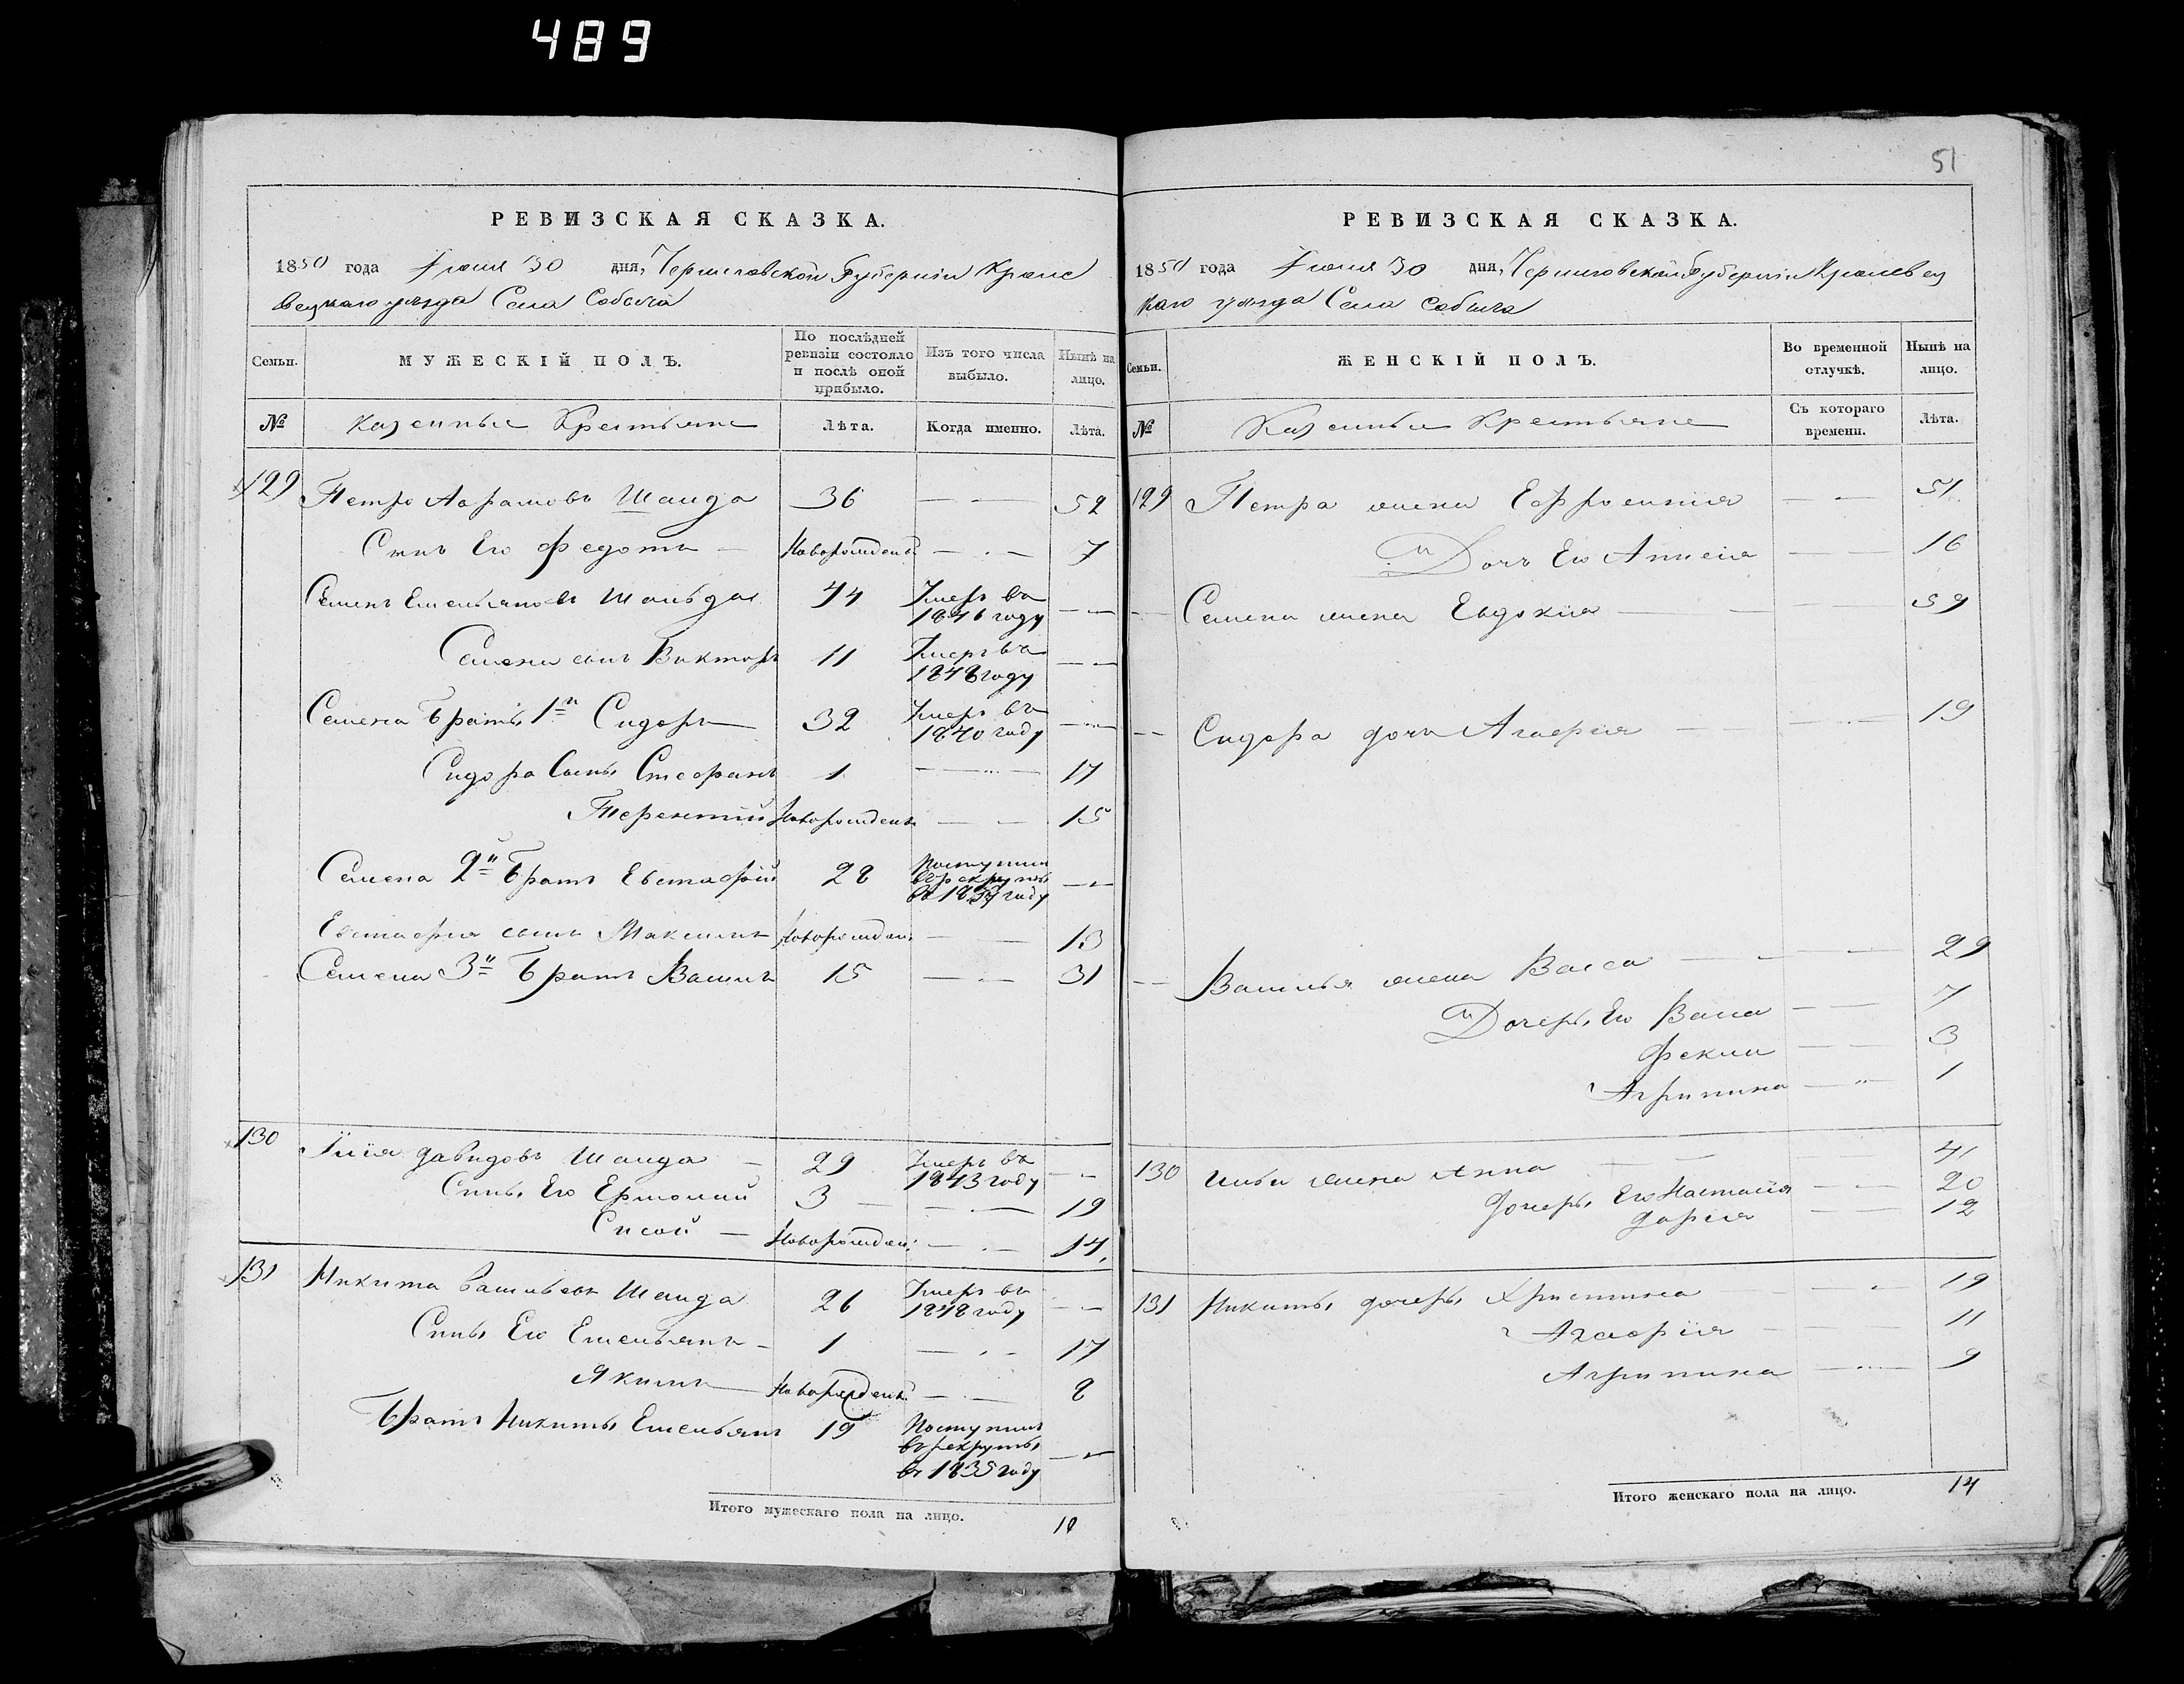 489
51
РЕВИЗСКАЯ СКАЗКА.
1850 года Іюня 30 дня, Черниговской Губерніи Кроле
вецкаго уѣзда Села Собича
Семьи. МУЖЕСКІЙ ПОЛЪ. По послѣдней ревизіи состояло и послѣ оной прибыло. Изъ того числа выбыло. Нынѣ на лицо.
№ Казенные Крестьяне Лѣта. Когда именно. Лѣта.
129 Петро Аврамовъ Шаида 36 — — 52
Сынъ Его Федотъ — Новорожденъ — — 7
Семенъ Емельяновъ Шаида 44 Умеръ въ 1846 году — —
Семена сынъ Викторъ 11 Умеръ въ 1848 году — —
Семена Братъ 1й Сидоръ 32 Умеръ въ 1840 году — —
Сидора Сынъ Стефанъ 1 — — 17
Терентій Новорожденъ — — 15
Семена 2й Братъ Евстафій 28 Поступилъ въ рекруты въ году — —
Евстафия сынъ Максимъ Новорожден. — — 13
Семена 3й Братъ Василь 15 — — 31
130 Илія Давидовъ Шаида — 29 Умеръ въ 1843 году — —
Сынъ Его Ермолай 3 — — — 19
Сисой — Новорожден. — — 14.
131 Никита Васильевъ Шаида 26 Умеръ въ 1848 году — —
Сынъ Его Емельянъ — 1 — — 17
Якимъ Новорожденъ — — 8
Братъ Никиты Емельянъ 19 Поступилъ въ рекруты въ 1835 году — —
Итого мужескаго пола на лицо. 10
РЕВИЗСКАЯ СКАЗКА.
1850 года Іюня 30 дня, Черниговской Губерніи Кролевец
каго уѣзда Села Собича
Семьи. ЖЕНСКІЙ ПОЛЪ. Во временной отлучкѣ. Нынѣ на лицо.
№ Казенные Крестьяне Съ котораго времени. Лѣта.
129 Петра жена Ефросинія — — 51.
Дочъ Его Анисія — — 16
— Семена жена Евдокия — — 59
— Сидора дочь Агафия — — 19
— Василья жена Васса — — 29
Дочеръ Его Васса — — 7
Фекли — — 3
Агрипина — — 1
130 Ильи жена Анна — — 41
Дочеръ Его Настасія — — 20
Дария — — 12
131 Никиты дочеръ Христина — 19
Агафія — — 11
Агрипина — — 9
Итого женскаго пола на лицо. 14